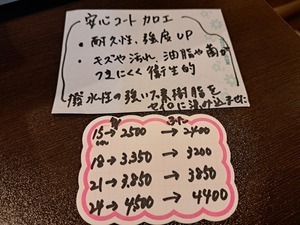 安心コート加工
• 耐久性、強度UP
• キズや汚れ、油脂や菌が
つきにくく衛生的
撥水性の強い樹脂を
に染み込ませた
15→2500 → 2400
18→3,350 → 3200
21→3,850 → 3850
24→4500→ 4400